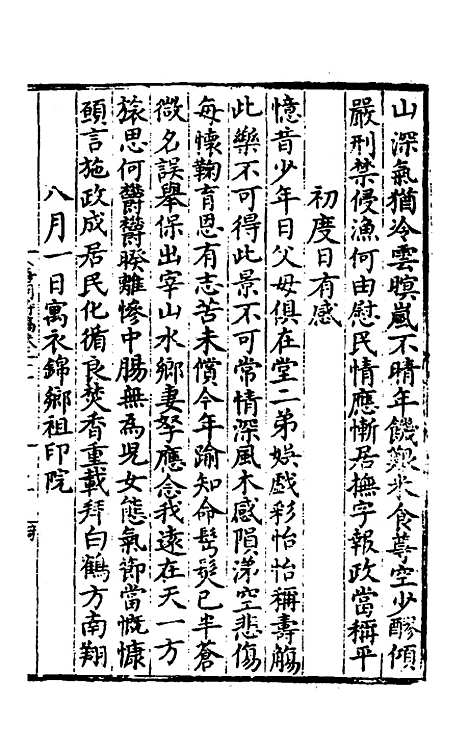 山深氣猶冷雲暝嵐不晴年饑艱米食蓴空少醪傾
嚴刑禁侵漁何由慰民情應慚居撫字報政當稱平
初度日有感
憶昔少年日父母俱在堂二弟娛戲彩怡怡稱壽觴
此樂不可得此景不可常情深風木感隕涕空悲傷
每懷鞠育恩有志苦未償今年踰知命髩髮已半蒼
微名誤舉保出宰山水鄉妻孥應念我遠在天一方
旅思何欝欝暌離慘中腸無為兒女態氣節當慨慷
願言施政成居民化循良焚香重載拜白鶴方南翔
八月一日寓衣錦鄉祖印院